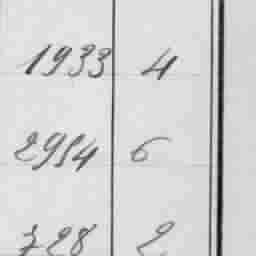 1933 4
2954 6
728 2